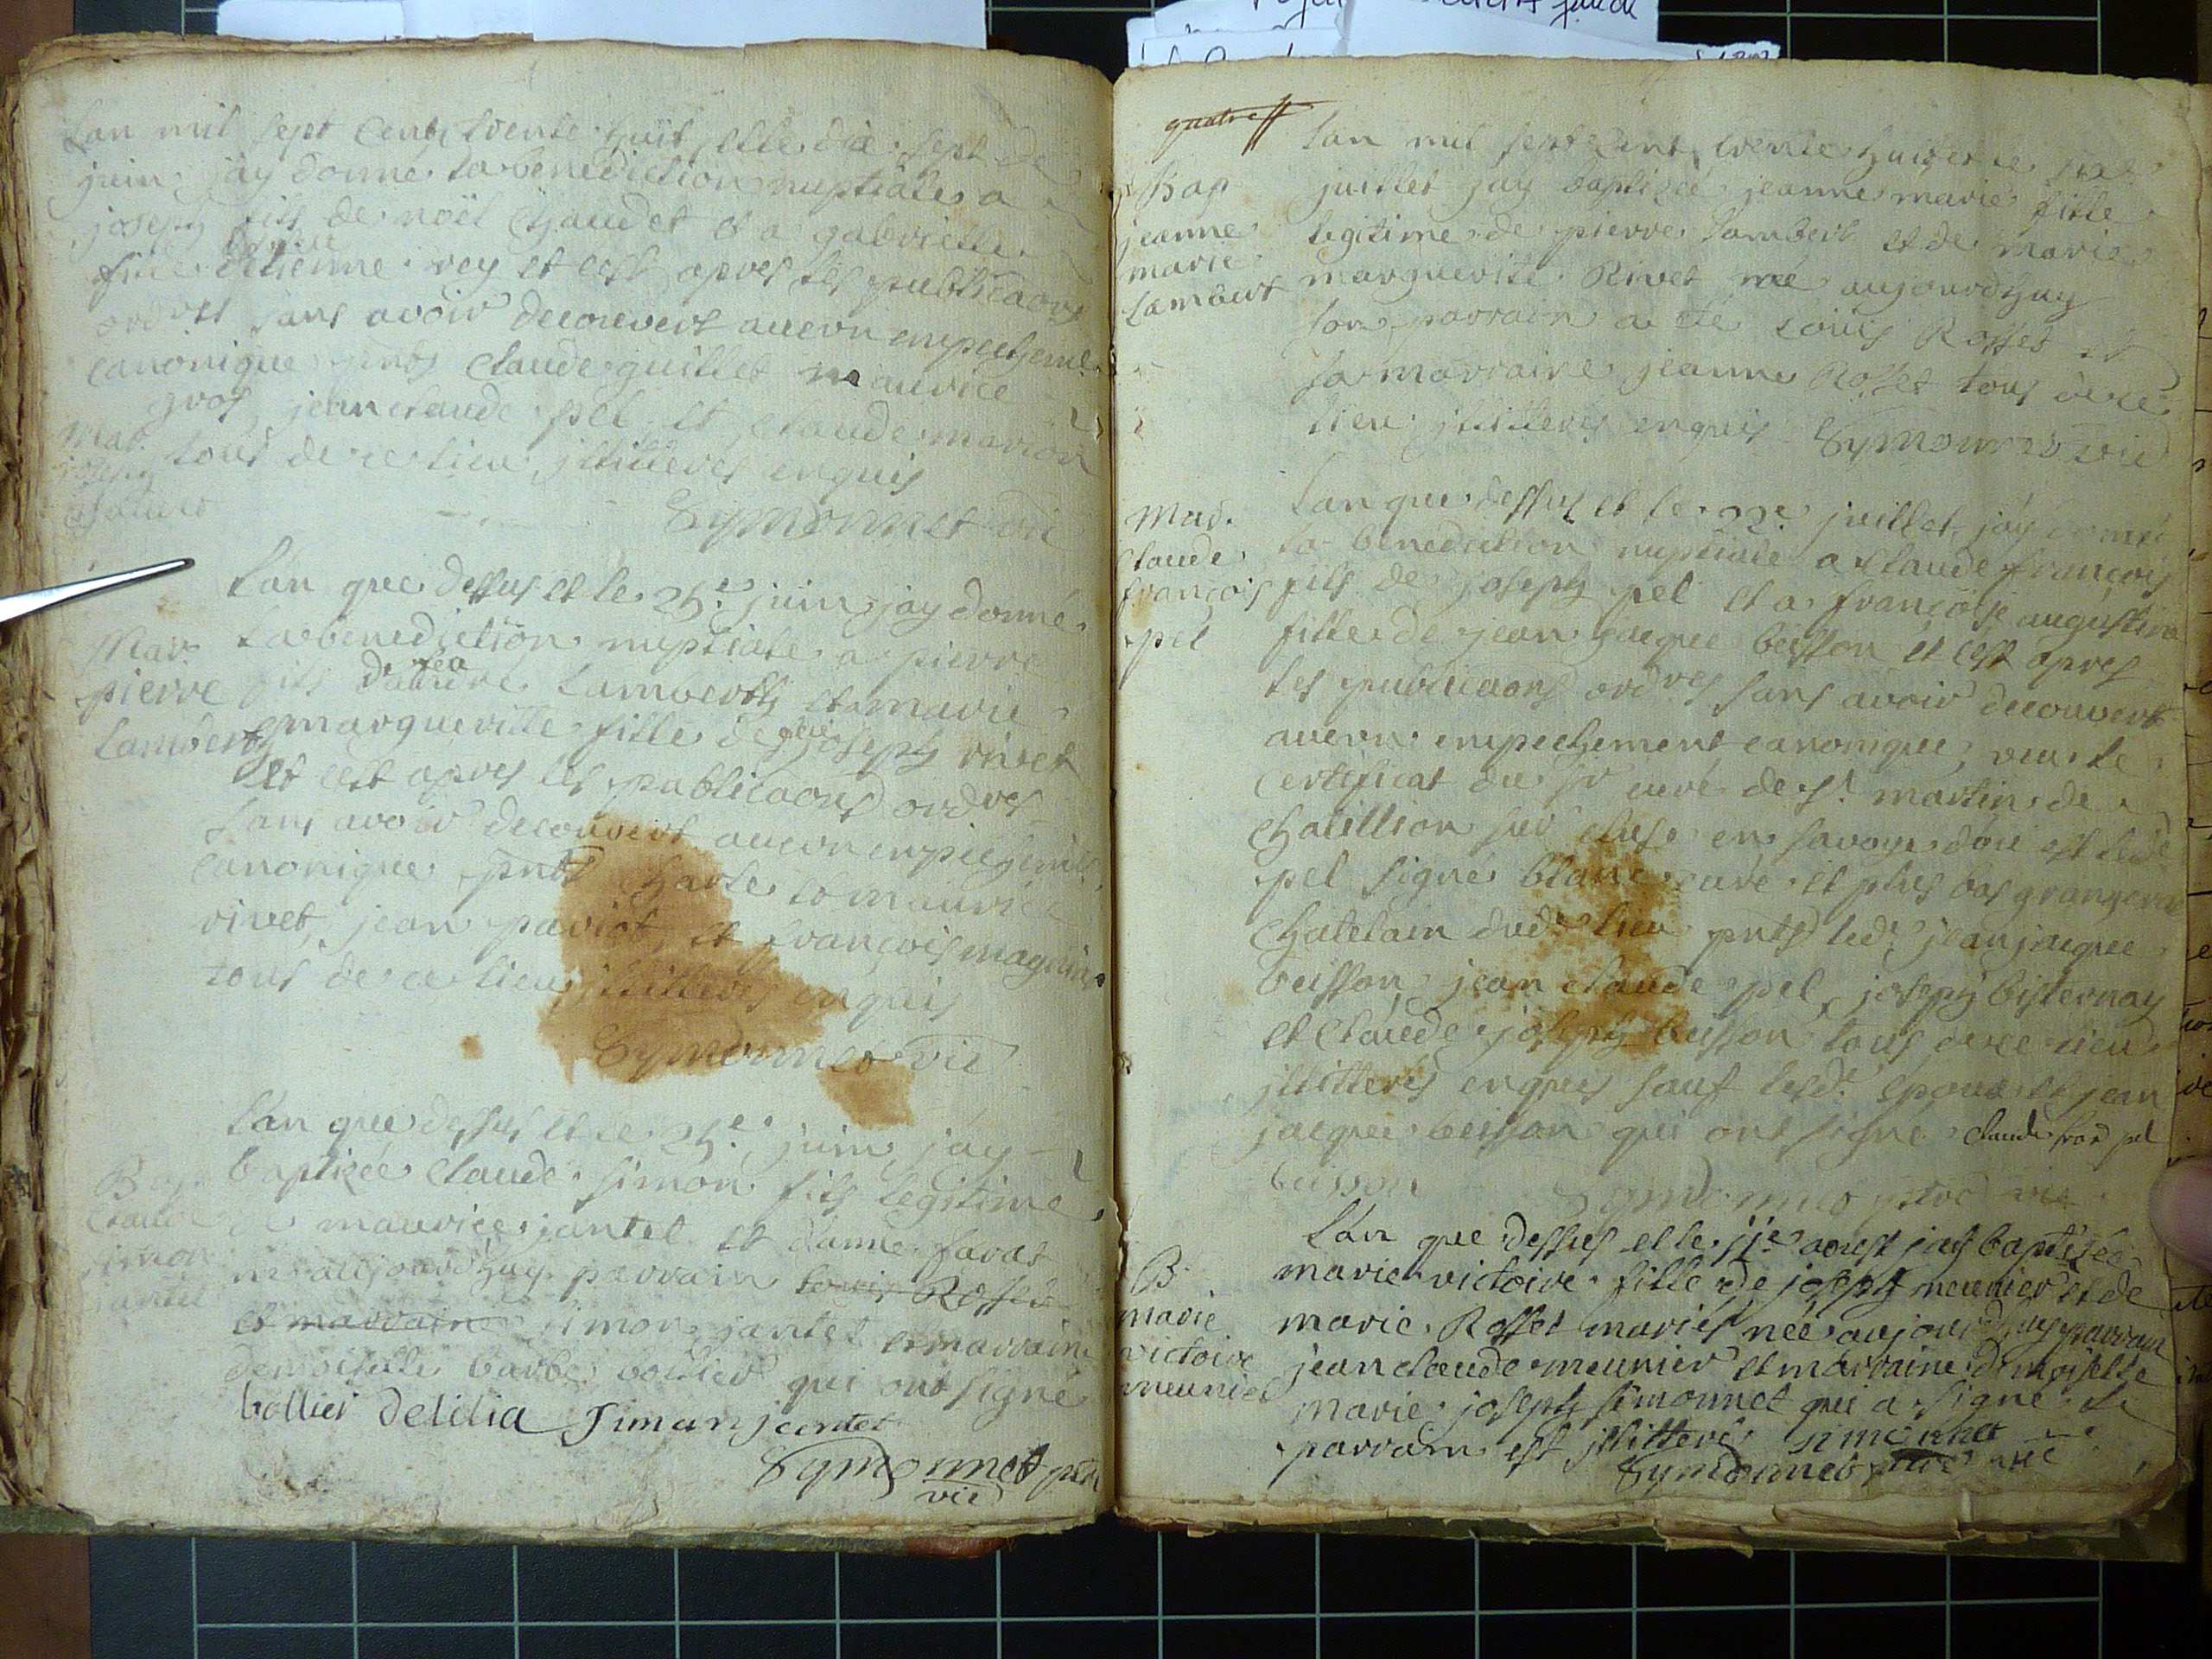 Lan mil sept cent trente huit et le dix sept de
juin jay donné la benediction nuptiale a
joseph fils de noël chaudet et a gabrielle
fille detienne rey et cest apres les publicaons
ordres sans avoir decouvert aucun empechemt
canonique pnts Claude guillet maurice
gros, jean claude pel et claude marion
tous de ce lieu jllitteres enquis
Mar.
joseph
Symonnet vic
Lan que dessus et le 25e juin jay donné
la benediction nuptiale a pierre
fils dandré feu Lambert et a marie
marguerite fille de joseph rivet
et cest apres les publicaons ordres
sans avoir decouvert aucun empechemt
canonique pnts Charle et maurice
rivet, jean paviot, et françois magnin
tous de ce lieu jllitteres enquis
Mar.
pierre
Lambert
Symonnet vic
Lan que dessus et le 25e juin jay
baptizée Claude simon fils legitime
de maurice jantet et danne favat
né aujourdhuy parrain louis Rosset
et marraine simon jantet et marraine
demoiselle barbe bollier qui ont signé
bollier Delilia Siman jantet
Bap
Claude
simon
jantet
Symonnet ptre
vic
quatre
Lan mil sept cent trente huit et le six
juillet jay baptizée jeanne marie fille
legitime de pierre Lambert et de marie
marguerite Rivet née aujourdhuy
son parrain a ete Louis Rosset et
sa marraine jeanne Rosset tous de ce
lieu jllitteres enquis Symonnet vic
Bap
jeanne
marie
Lambert
Lan que dessus et le 22e juillet jay donné
la benediction nuptiale a Claude françois
fils de joseph pel et a françoise augustine
fille de jean jacque beisson et cest apres
les publicaons ordres sans avoir decouvert
aucun empechement canonique, veu le
certificat du sr curé de st martin de
Chatillion sur cluse en savoye doù est led
pel signé blanc curé et plus bas
Chatelain dud lieu pnts led jean jacque
beisson, jean claude pel, joseph bisternay
et Claude joseph beisson tous de ce lieu
jllitteres enquis sauf lesd epoux et jean
jacque beisson qui ont signé claude fran pel
beisson
Symonnet ptre vic
Mar.
Claude
françois
pel
Lan que dessus et le jje aoust jay baptizée
marie victoire fille de joseph meunier et de
marie Rosset mariés née aujourdhuy parrain
jean claude meunier et marraine demoiselle
marie joseph simonnet qui a signé le
parrain est jllitteré simonnet
Symonnet ptre vic
B
marie
victoire
meunier